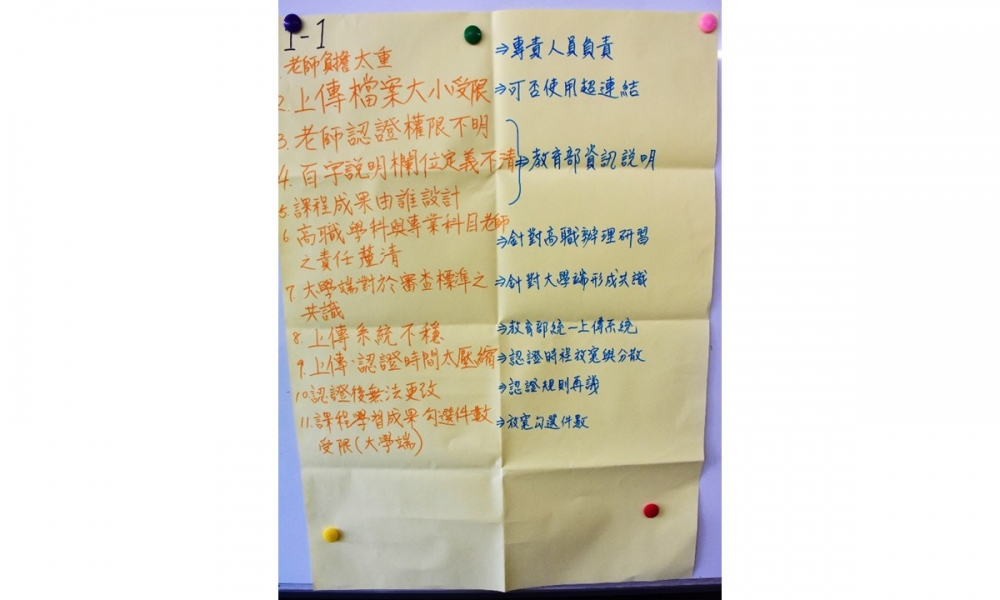 1-1
1. 老師負擔太重 ⇒專責人員負責
2. 上傳檔案大小受限 ⇒可否使用超連結
3. 老師認證權限不明
4. 百字說明欄位定義不清 ⇒教育部資訊說明
5. 課程成果由誰設計
6. 高職學科與專業科目老師
之責任釐清 ⇒針對高職辦理研習
7. 大學端對於審查標準之 ⇒針對大學端形成共識
共識
8. 上傳系統不穩 ⇒教育部統一上傳系統
9. 上傳、認證時間太壓縮 ⇒認證時程放寬與分散
10. 認證後無法更改 ⇒認證規則再議
11. 課程學習成果勾選件數 ⇒放寬勾選件數
受限(大學端)